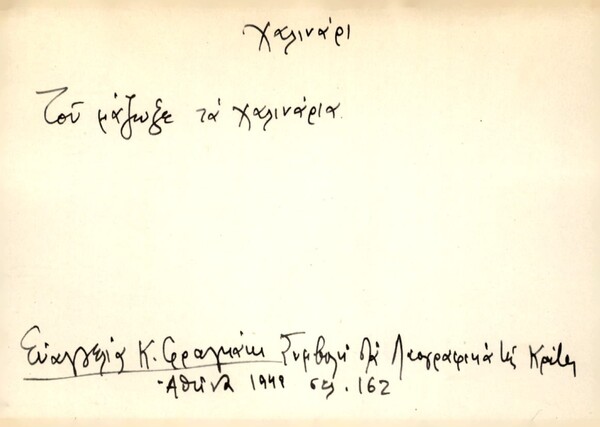 χαλινάρι
Τοῦ μάζωξε τά χαλινάρια.
Εὐαγγελία Κ. Φραγκάκι Συμβολή στά Λαογραφικά τῆς Κρήτης
Ἀθήνα 1949 σελ. 162